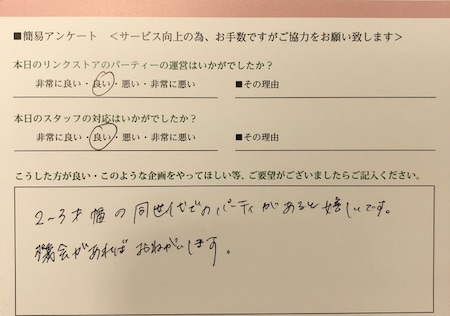 ■簡易アンケート ＜サービス向上の為、お手数ですがご協力をお願い致します＞
本日のリンクストアのパーティーの運営はいかがでしたか？
非常に良い・良い・悪い・非常に悪い ■その理由
本日のスタッフの対応はいかがでしたか？
非常に良い・良い・悪い・非常に悪い ■その理由
こうした方が良い・このような企画をやってほしい等、ご要望がございましたらご記入ください。
2～3才幅の同世代でのパーティがあると嬉しいです。
機会があればおねがいします。